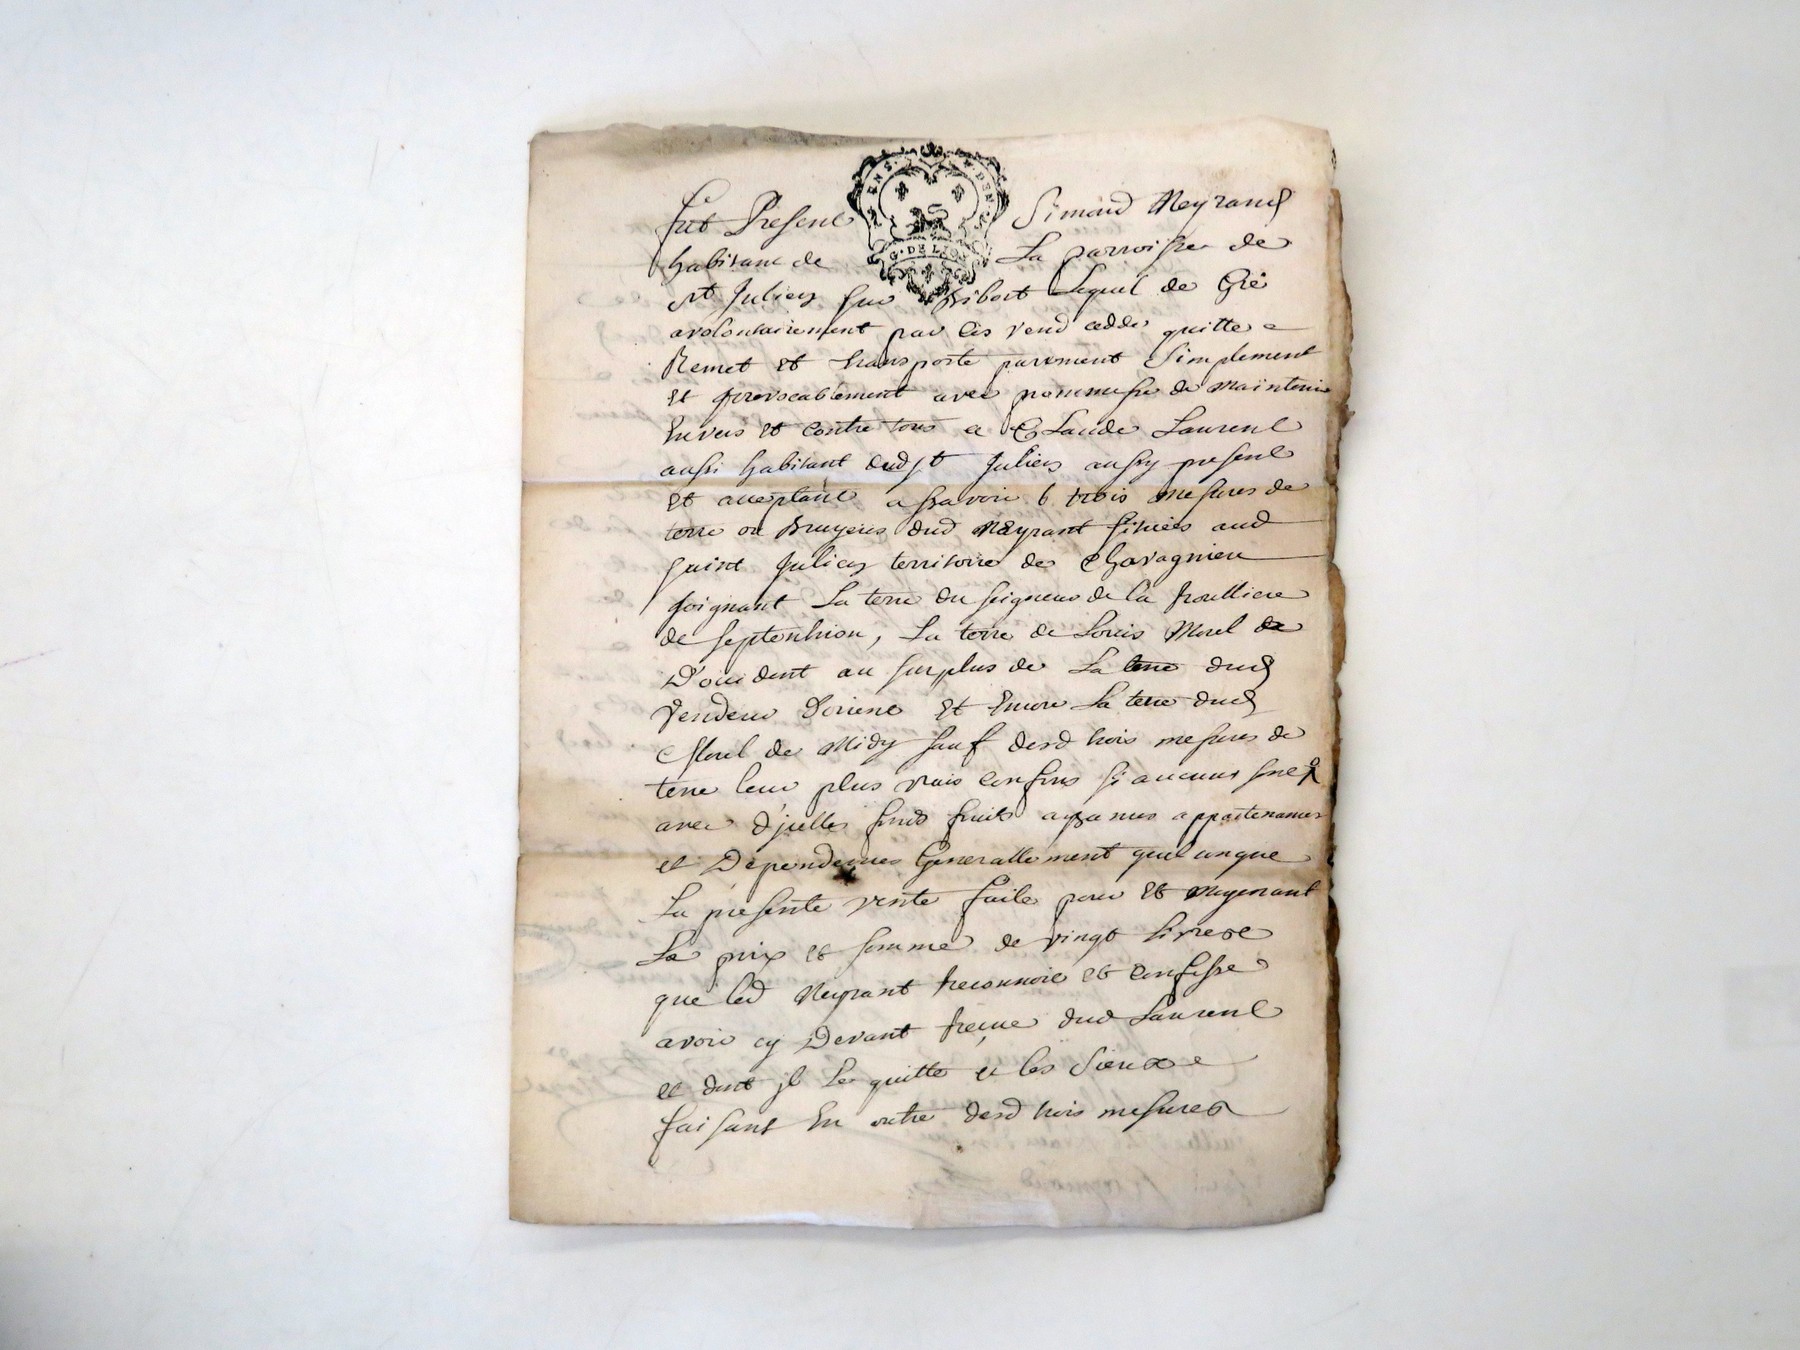 G. DE LION
fut Present Simond Meyrand
habitant de La parroisse de
st Julien sur Bibost Lequel de Gré
a volontairement par ces vend cedde quitte
Remet et transporte purement Simplement
et jrrevocablement avec prommesse de Maintenir
Envers et contre tous a Claude Laurent
aussi habitant dud st Julien aussy present
et acceptant assavoir trois mesures de
terre ou Bruyeres dud Meyrant situées aud
saint Julien territoire de Chavagnieu
joignant La terre du seigneur de la
de septentrion, La terre de Louis Morel
D'occident au surplus de La terre dud
Vendeur D'orient et Encore La terre dud
Morel de Midy sauf desd trois mesures de
terre leur plus vrais confins si aucuns
avec d'jcelles fonds fruits appartenances
et Dépendences Generallement quelconque
La presente vente faite pour et Moyenant
Le prix et somme de vingt Livres
que led Meyrant reconnoit et confesse
avoir cy Devant reçue dud Laurent
et dont jl Le quitte et les Siens
faisant En outre desd trois mesures